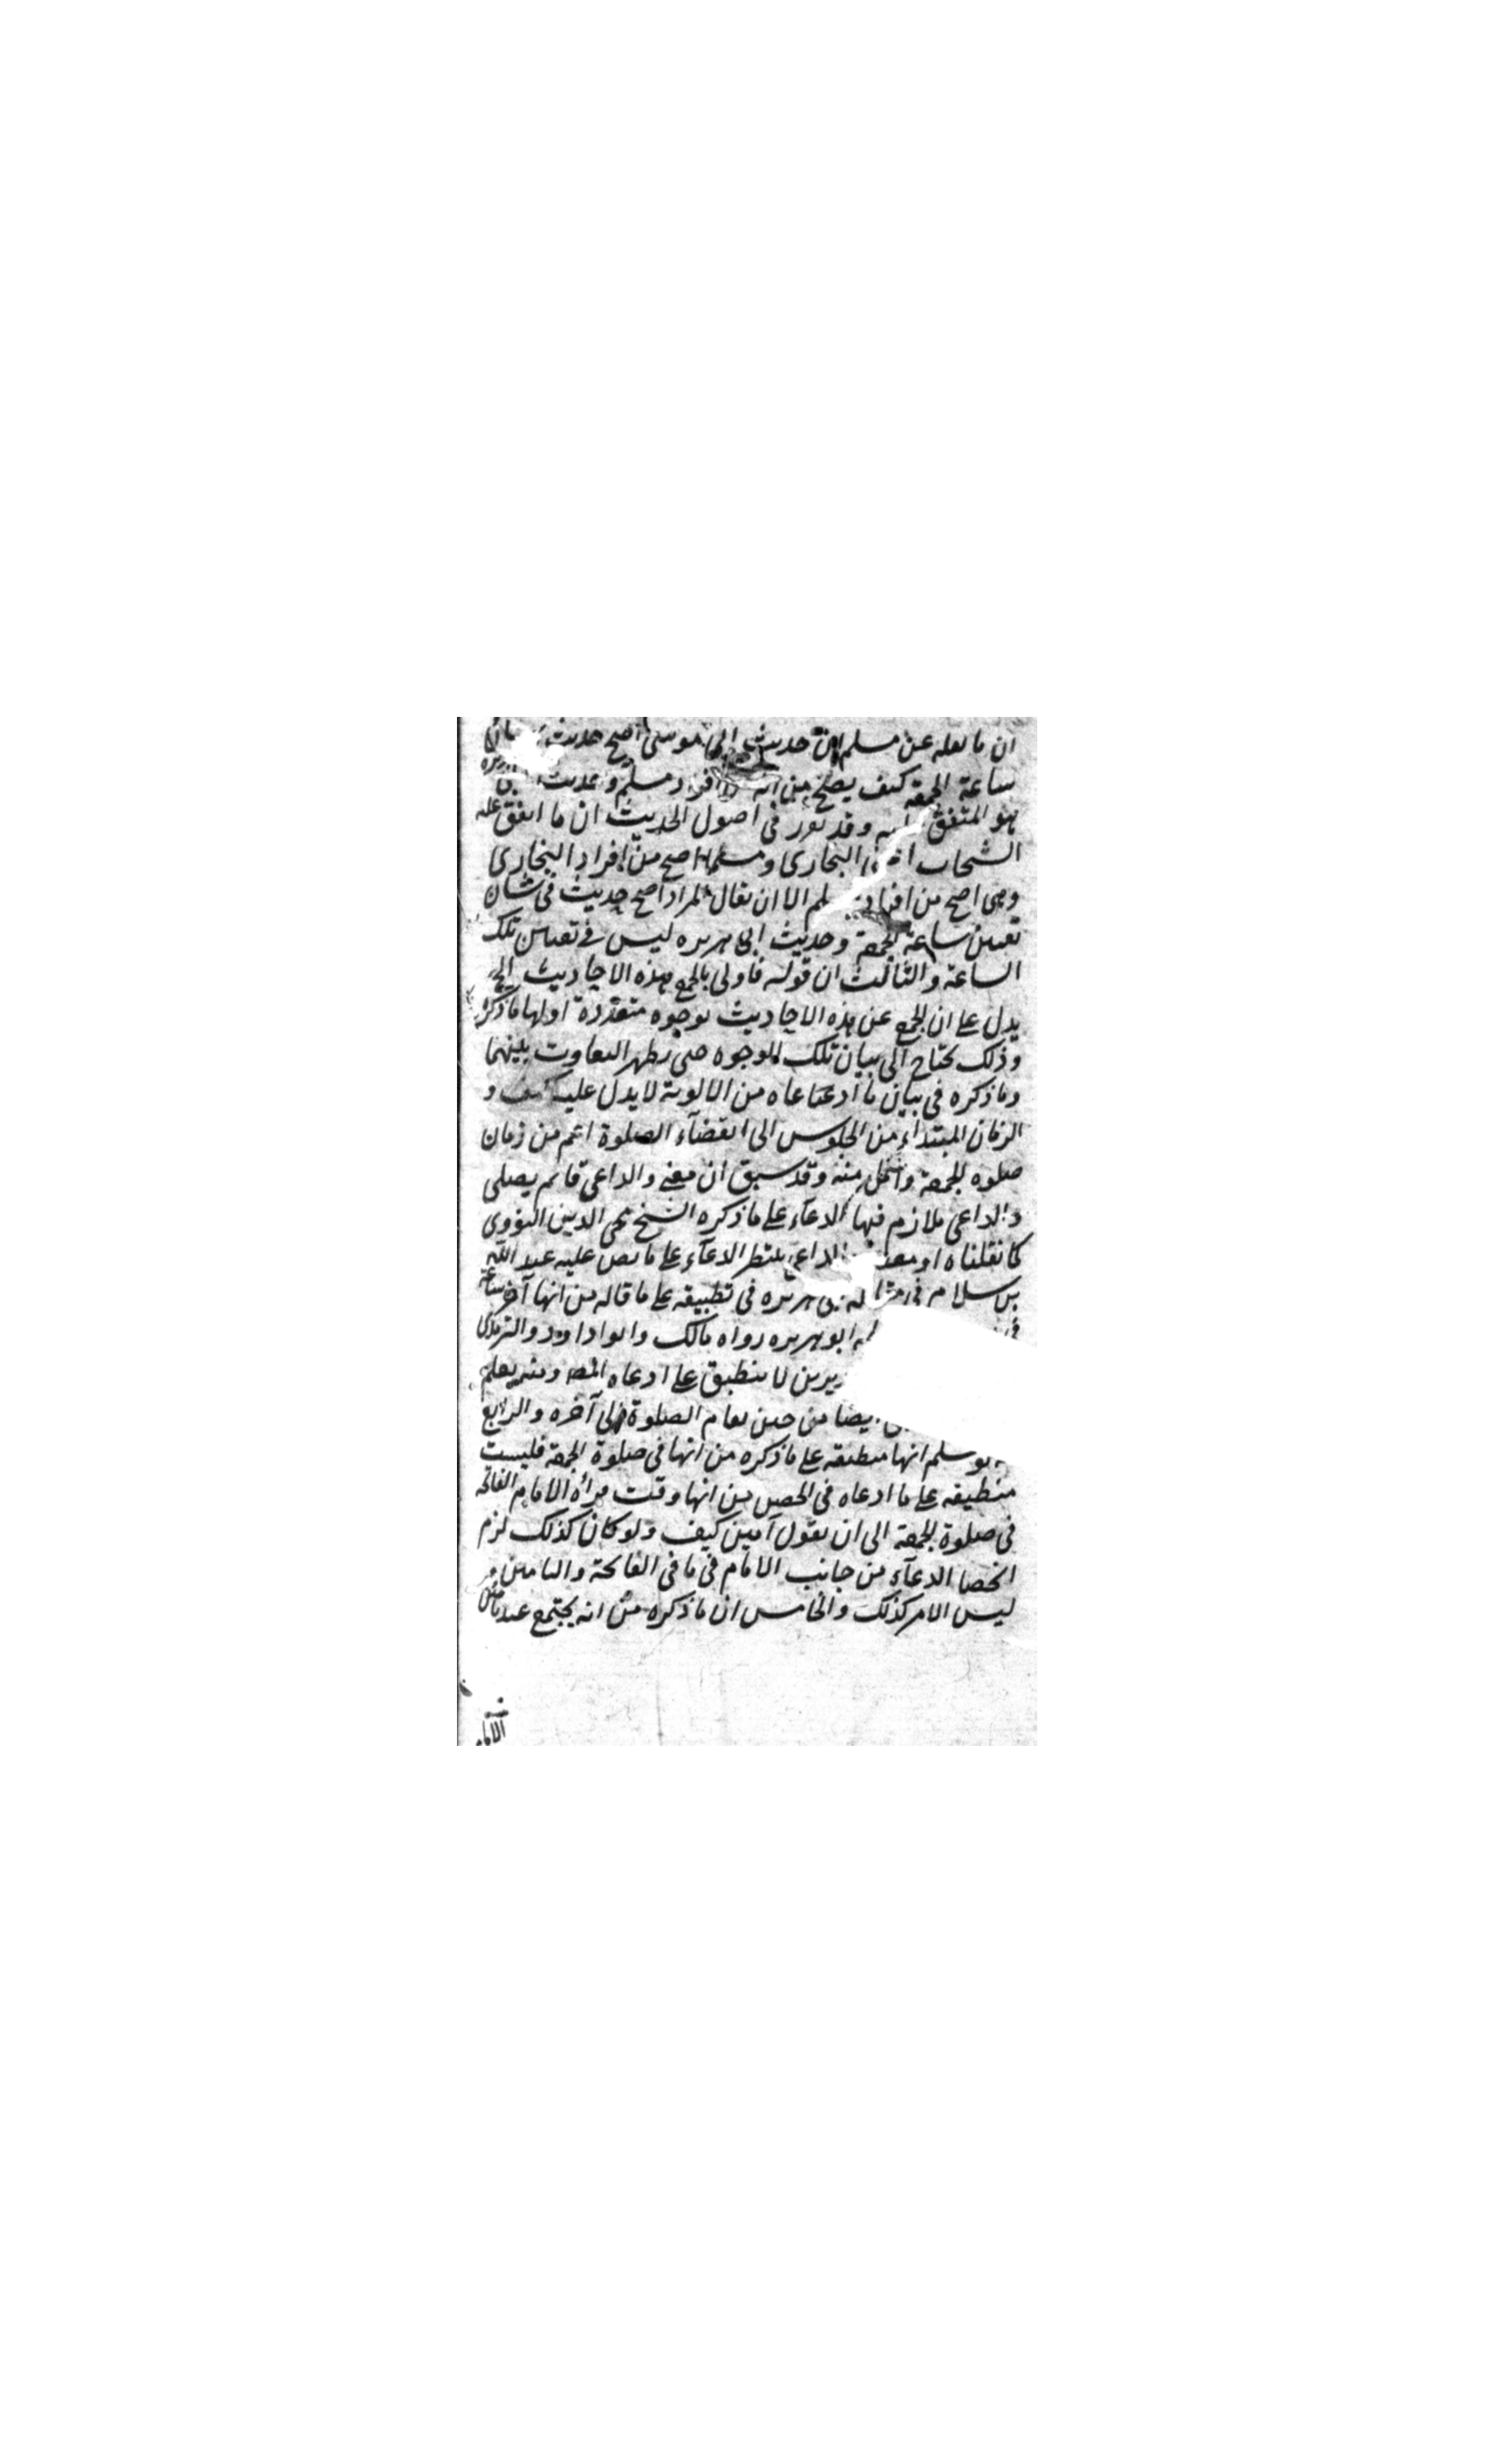 ان ما نقله عن مسلم ان حديث ابي موسى اصح حديث
ساعة الجمعة كيف يصلح من انه افراد مسلم وحديث ابي
هو المتفق وقد تقرر في اصول الحديث ان ما اتفق عليه
الشيخان البخاري ومسلما اصح من افراد البخاري
وهي اصح من الا ان يقال المراد اصح حديث في شان
تعيين ساعة الجمعة وحديث ابي هريره ليس في تعيين تلك
الساعة والثالث ان قوله فاولى بالجمع بهذه الاحاديث الخ
يدل على ان الجمع عن هذه الاحاديث بوجوه متعددة اولها ما ذكره
وذلك يحتاج الى بيان تلك الوجوه حتى يظهر التفاوت بينهما
وما ذكره في بيان ما ادعاه من الالوية لا يدل عليه كيف و
الزمان المبتداء من الجلوس الى انقضاء الصلوة اعم من زمان
صلوه الجمعة واشمل منه وقد سبق ان معنى والداعي قائم يصلي
والداعي ملازم فيها الدعاء على ما ذكره الشيخ محي الدين النووي
كما نقلناه او الداعي ينتظر الدعاء على ما نص عليه عبد الله
بن سلام في هريره في تطبيقه على ما قاله من انها آخر ساعة
ابو هريره رواه مالك وابو داود والترمذي
لا ينطبق على ادعاه المص ومنه يعلم
ايضا من حين تقام الصلوة الى آخره والرابع
لو سلم انها منطبقه على ما ذكره من انها في صلوة الجمعة فليست
منطبقه على ما ادعاه في الحصن من انها وقت قرأة الامام الفاتحة
في صلوة الجمعة الى ان يقول آمين كيف ولو كان كذلك لزم
انحصا الدعاء من جانب الامام في ما في الفاتحة والتامين و
ليس الامر كذلك والخامس ان ما ذكره من انه يجتمع عند تامين
الامام